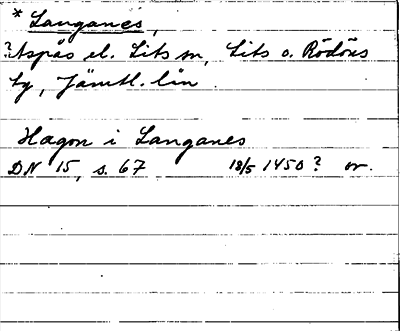 * Langanes,
?Aspås el. Lits sn, Lits o. Rödöns
tg, Jämtl. län.
Hagon i Langanes
DN 15, s. 67 18/5 1450? or.